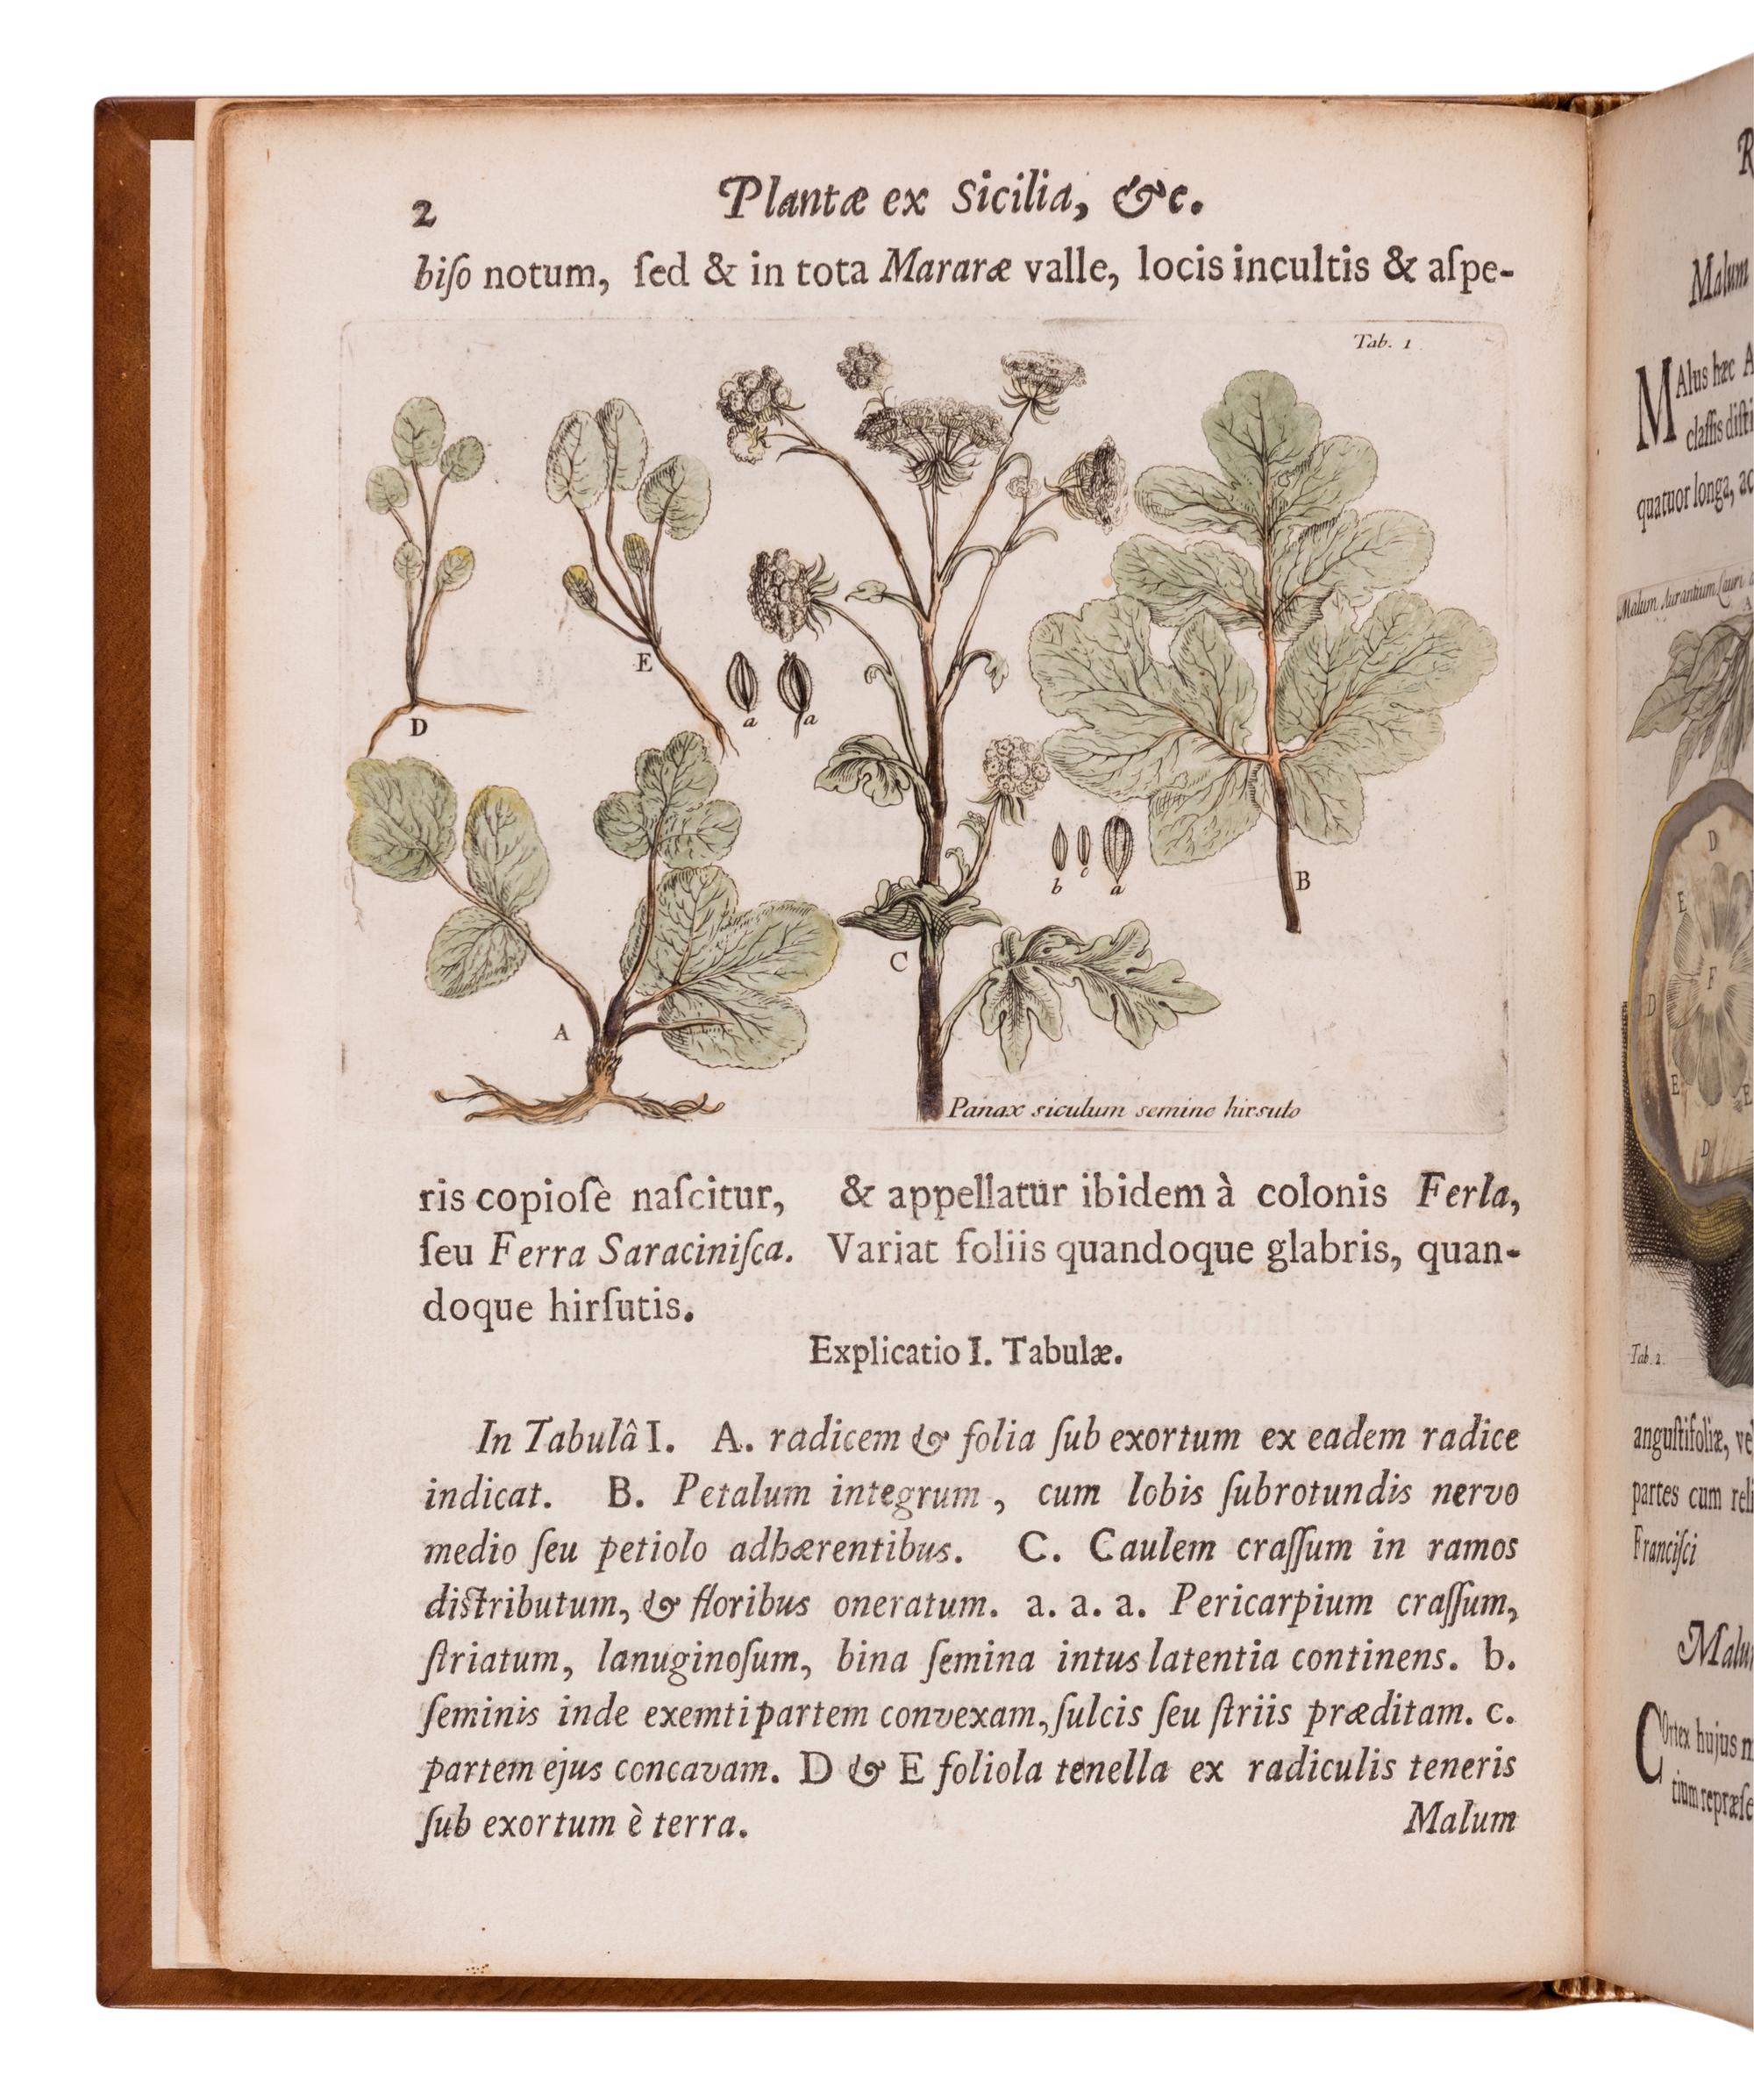 2 Plantæ ex Sicilia, &c.
biſo notum, ſed & in tota Mararæ valle, locis incultis & aſpe-
Tab. 1
D
E
a
a
b
c
a
B
C
A
Panax siculum semine hirsuto
ris copioſè naſcitur, & appellatur ibidem à colonis Ferla,
ſeu Ferra Saraciniſca. Variat foliis quandoque glabris, quan-
doque hirſutis.
Explicatio I. Tabulæ.
In Tabulâ I. A. radicem & folia ſub exortum ex eadem radice
indicat. B. Petalum integrum, cum lobis ſubrotundis nervo
medio ſeu petiolo adhærentibus. C. Caulem craſſum in ramos
diſtributum, & floribus oneratum. a. a. a. Pericarpium craſſum,
ſtriatum, lanuginoſum, bina ſemina intus latentia continens. b.
ſeminis inde exemti partem convexam, ſulcis ſeu ſtriis præditam. c.
partem ejus concavam. D & E foliola tenella ex radiculis teneris
ſub exortum è terra.
Malum
R
Malum
MAlus hæc A
claſſis diſti
quatuor longa, ac
Malum Aurantium Lauri
D
E
F
D
E
E
D
Tab. 2
anguſtifoliæ, ve
partes cum reli
Franciſci
Malu
COrtex hujus m
tium repræſe